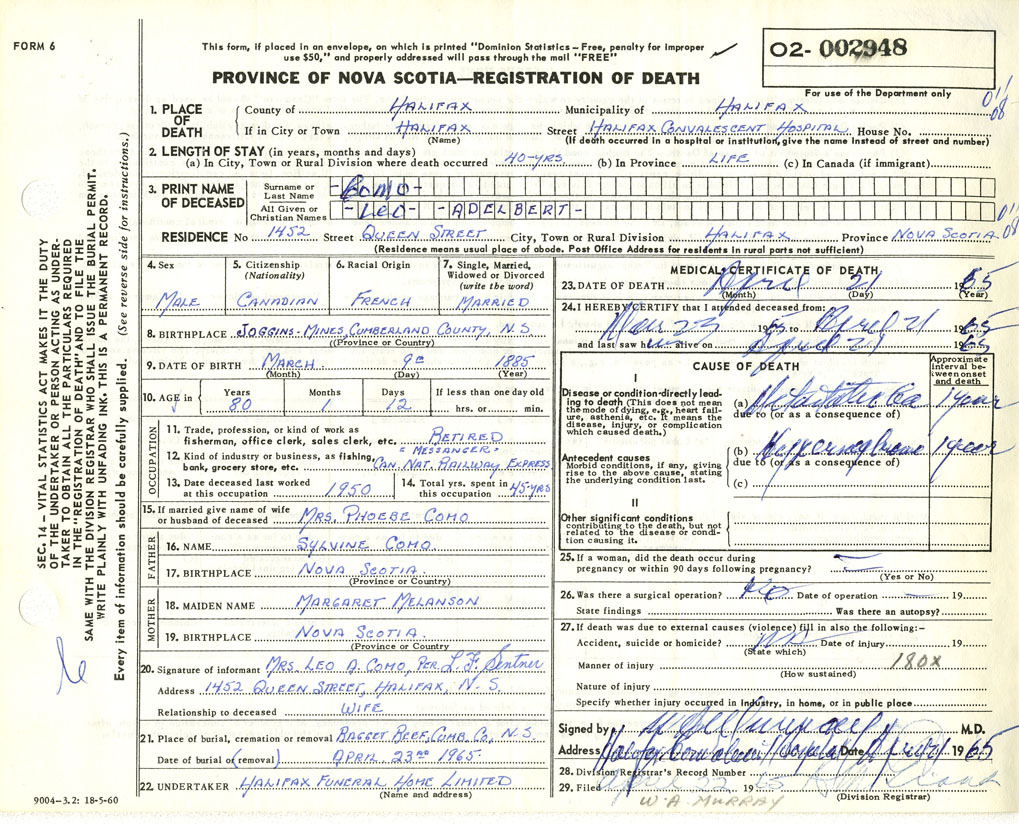 FORM 6
This form, if placed in an envelope, on which is printed "Dominion Statistics – Free, penalty for improper
use $50," and properly addressed will pass through the mail "FREE"
O2- 002948
For use of the Department only
PROVINCE OF NOVA SCOTIA—REGISTRATION OF DEATH
1. PLACE OF DEATH
County of HALIFAX Municipality of HALIFAX
If in City or Town HALIFAX Street HALIFAX CONVALESCENT HOSPITAL House No.
(Name) (If death occurred in a hospital or institution, give the name instead of street and number)
2. LENGTH OF STAY (in years, months and days)
(a) In City, Town or Rural Division where death occurred 40-YRS (b) In Province LIFE (c) In Canada (if immigrant)
3. PRINT NAME OF DECEASED
Surname or Last Name -COMO-
All Given or Christian Names -LEO- -ADELBERT-
RESIDENCE No 1452 Street QUEEN STREET City, Town or Rural Division HALIFAX Province NOVA SCOTIA
(Residence means usual place of abode. Post Office Address for residents in rural parts not sufficient)
4. Sex MALE
5. Citizenship (Nationality) CANADIAN
6. Racial Origin FRENCH
7. Single, Married, Widowed or Divorced (write the word) MARRIED
8. BIRTHPLACE JOGGINS-MINES, CUMBERLAND COUNTY, N.S.
(Province or Country)
9. DATE OF BIRTH MARCH 9 1885
(Month) (Day) (Year)
10. AGE in Years 80 Months 1 Days 12 If less than one day old hrs. or min.
OCCUPATION
11. Trade, profession, or kind of work as fisherman, office clerk, sales clerk, etc. RETIRED
"MESSANGER"
12. Kind of industry or business, as fishing, bank, grocery store, etc. CAN. NAT. RAILWAY EXPRESS
13. Date deceased last worked at this occupation 1950
14. Total yrs. spent in this occupation 45-YRS
15. If married give name of wife or husband of deceased MRS. PHOEBE COMO
FATHER
16. NAME SYLVINE COMO
17. BIRTHPLACE NOVA SCOTIA
(Province or Country)
MOTHER
18. MAIDEN NAME MARGARET MELANSON
19. BIRTHPLACE NOVA SCOTIA
(Province or Country)
20. Signature of informant MRS. LEO A. COMO, PER L. F. Sentner
Address 1452 QUEEN STREET, HALIFAX, N.S.
Relationship to deceased WIFE
21. Place of burial, cremation or removal RAGGET REEF, CUMB. CO., N.S.
Date of burial or removal) APRIL 23RD 1965
22. UNDERTAKER HALIFAX FUNERAL HOME LIMITED
(Name and address)
9004-3.2: 18-5-60
MEDICAL CERTIFICATE OF DEATH
23. DATE OF DEATH April 21 1965
(Month) (Day) (Year)
24. I HEREBY CERTIFY that I attended deceased from:
Mar 23 1965 to April 21 1965
and last saw him alive on April 21 1965
CAUSE OF DEATH
Approximate interval between onset and death
I
Disease or condition directly leading to death (This does not mean the mode of dying, e.g., heart failure, asthenia, etc. It means the disease, injury, or complication which caused death.)
(a) Metastatic Ca 1 year
due to (or as a consequence of)
Antecedent causes
Morbid conditions, if any, giving rise to the above cause, stating the underlying condition last.
(b) Hypernephroma 1 year
due to (or as a consequence of)
(c)
II
Other significant conditions contributing to the death, but not related to the disease or condition causing it.
25. If a woman, did the death occur during pregnancy or within 90 days following pregnancy? —
(Yes or No)
26. Was there a surgical operation? No Date of operation — 19
State findings Was there an autopsy?
27. If death was due to external causes (violence) fill in also the following:-
Accident, suicide or homicide? Date of injury 19
(State which)
Manner of injury 180X
(How sustained)
Nature of injury
Specify whether injury occurred in industry, in home, or in public place
Signed by M.D.
Address Halifax Convalescent Hospital Date April 21 1965
28. Division Registrar's Record Number
29. Filed April 22 1965
(Division Registrar)
W A MURRAY
SEC. 14 – VITAL STATISTICS ACT MAKES IT THE DUTY
OF THE UNDERTAKER OR PERSON ACTING AS UNDER-
TAKER TO OBTAIN ALL THE PARTICULARS REQUIRED
IN THE "REGISTRATION OF DEATH" AND TO FILE THE
SAME WITH THE DIVISION REGISTRAR WHO SHALL ISSUE THE BURIAL PERMIT.
WRITE PLAINLY WITH UNFADING INK. THIS IS A PERMANENT RECORD.
Every item of information should be carefully supplied. (See reverse side for instructions.)